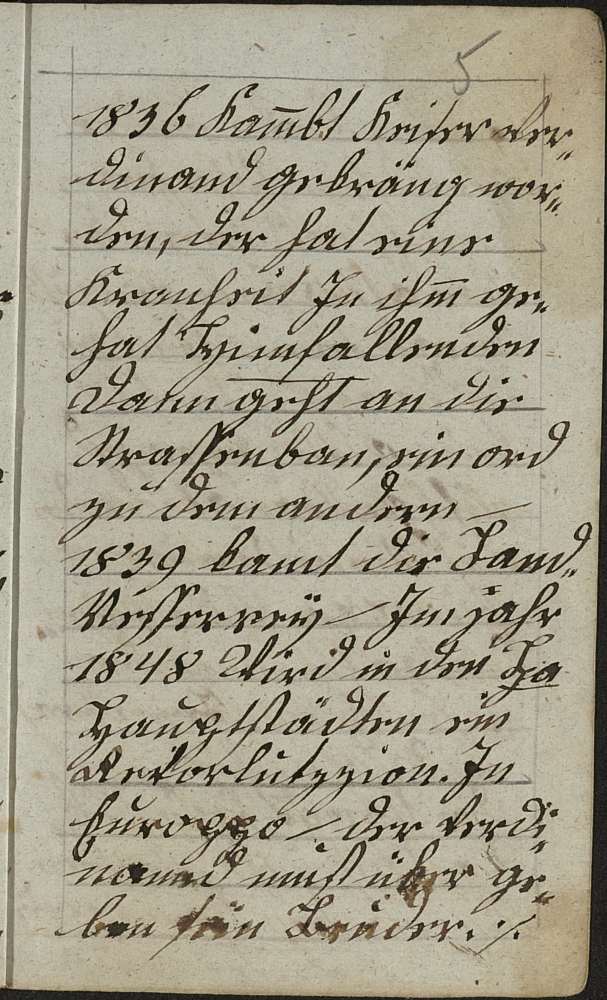 5
1836 Kam̅bt Keiser Ver„
dinand gekräng wor„
den, der hat eine
Kranheit In ihm̅ ge„
hat Hinfallenden
Dann geht an die
Strassenban, ein ord
zu dem andern –
1839 kamt die Land„
Messerreÿ – Im jahr
1848 Wird in den Ha
Hauptstädten ein
Revorlutzion. In
Europpo – der Verdi„
nannd muß über ge„
ben sein Bruder. ·/·